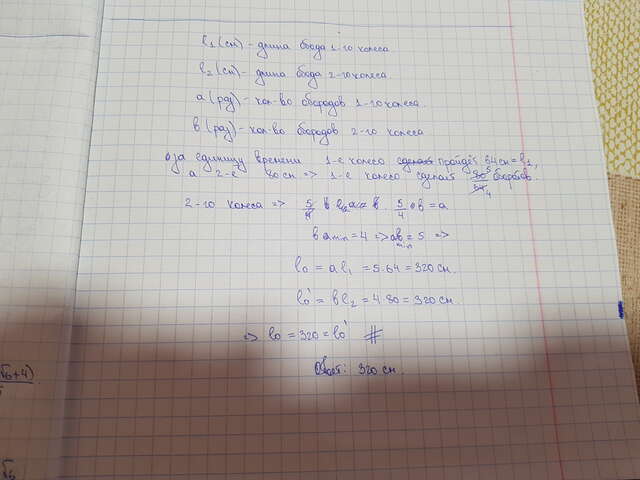 l₁ (см) - длина обода 1-го колеса
l₂ (см) - длина обода 2-го колеса
a (раз) - кол-во оборотов 1-го колеса
b (раз) - кол-во оборотов 2-го колеса
за единицу времени 1-е колесо пройдёт 64 см = l₁,
а 2-е 80 см => 1-е колесо сделает 80⁵/64₄ оборотов
2-го колеса => 5/4 b . 5/4 b = a
b min = 4 => a min = 5 =>
l₀ = al₁ = 5·64 = 320 см
l₀' = bl₂ = 4·80 = 320 см
=> l₀ = 320 = l₀' #
Ответ: 320 см.
√6+4)
√6